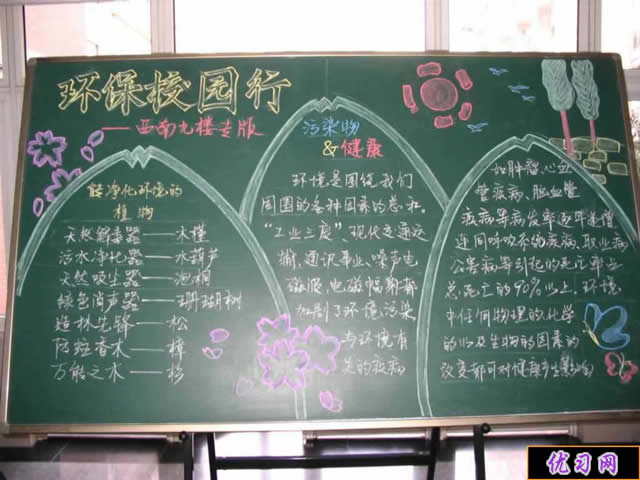 环保校园行
——西南九楼专版
能净化环境的
植物
天然解毒器——木槿
污水净化器——水葫芦
天然吸尘器——泡桐
绿色消声器——珊瑚树
造林先锋——松
防蛀香木——樟
万能之木——杉
污染物
&健康
环境是围绕我们
周围的各种因素的总和。
“工业三废”、现代交通运
输、通讯事业、噪声电
磁波、电磁辐射都
加剧了环境污染
与环境有
关的疾病
如肿瘤、心血
管疾病、脑血管
疾病等病发率逐年递增
连同呼吸系统疾病、职业病
公害病等引起的死亡率占
总死亡的90%以上,环境
中任何物理的化学
的以及生物的因素的
改变都可对健康产生影响
优习网